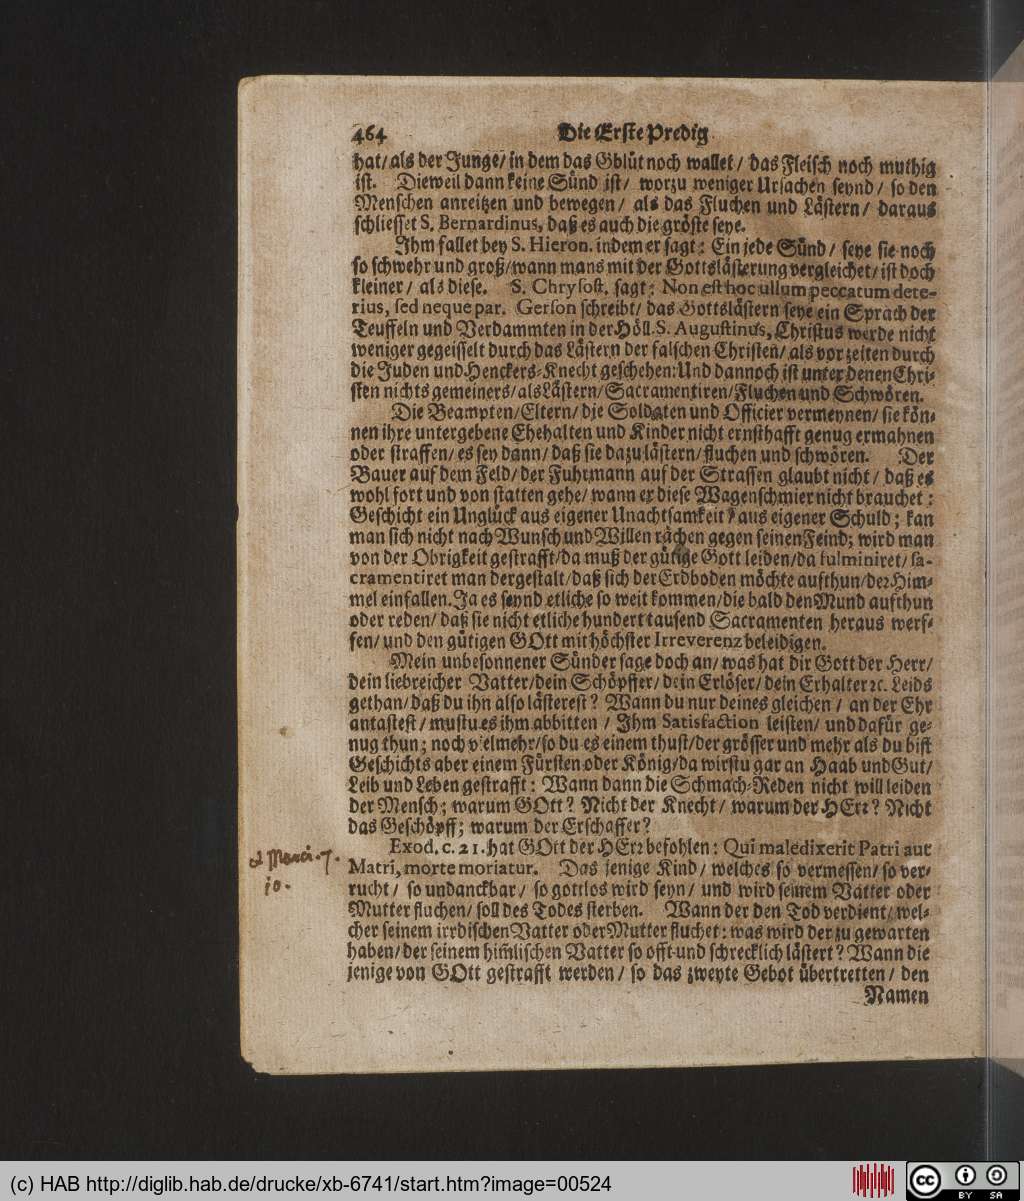 464 Die Erste Predig
hat/ als der Junge/ in dem das Gblüt noch wallet / das Fleisch noch muthig
ist. Dieweil dann keine Sünd ist/ worzu weniger Ursachen seynd / so den
Menschen anreitzen und bewegen / als das Fluchen und Lästern / daraus
schliesset S. Bernardinus, daß es auch die gröste seye.
Ihm fallet bey S. Hieron. indem er sagt: Ein jede Sünd / seye sie noch
so schwehr und groß/ wann mans mit der Gottslästerung vergleichet/ ist doch
kleiner / als diese. S. Chrysost. sagt: Non est hoc ullum peccatum dete-
rius, sed neque par. Gerson schreibt/ das Gottslästern seye ein Sprach der
Teuffeln und Verdammten in der Höll. S. Augustinus, Christus werde nicht
weniger gegeisselt durch das Lästern der falschen Christen/ als vor zeiten durch
die Juden und Henckers-Knecht geschehen: Und dannoch ist unter denen Chri-
sten nichts gemeiners/ als Lästern/ Sacramentiren/ Fluchen und Schwören.
Die Beampten/ Eltern/ die Soldaten und Officier vermeynen/ sie kön-
nen ihre untergebene Ehehalten und Kinder nicht ernsthafft genug ermahnen
oder straffen/ es sey dann/ daß sie dazu lästern/ fluchen und schwören. Der
Bauer auf dem Feld/ der Fuhrmann auf der Strassen glaubt nicht / daß es
wohl fort und von statten gehe/ wann er diese Wagenschmier nicht brauchet:
Geschicht ein Unglück aus eigener Unachtsamkeit / aus eigener Schuld; kan
man sich nicht nach Wunsch und Willen rächen gegen seinen Feind; wird man
von der Obrigkeit gestrafft/ da muß der gütige Gott leiden/ da fulminiret/ sa-
cramentiret man dergestalt/ daß sich der Erdboden möchte aufthun/ der Him-
mel einfallen. Ja es seynd etliche so weit kommen/ die bald den Mund aufthun
oder reden/ daß sie nicht etliche hundert tausend Sacramenten heraus werf-
fen/ und den gütigen GOtt mit höchster Irreverenz beleidigen.
Mein unbesonnener Sünder sage doch an/ was hat dir Gott der Herr/
dein liebreicher Vatter/ dein Schöpffer/ dein Erlöser/ dein Erhalter ꝛc. Leids
gethan/ daß du ihn also lästerest? Wann du nur deines gleichen / an der Ehr
antastest / mustu es ihm abbitten / Ihm Satisfaction leisten/ und dafür ge-
nug thun; noch vielmehr/ so du es einem thust/ der grösser und mehr als du bist
Geschichts aber einem Fürsten oder König/ da wirstu gar an Haab und Gut/
Leib und Leben gestrafft: Wann dann die Schmach-Reden nicht will leiden
der Mensch; warum GOtt? Nicht der Knecht/ warum der HErr? Nicht
das Geschöpff; warum der Erschaffer?
Exod. c. 21. hat GOtt der HErr befohlen: Qui maledixerit Patri aut
Matri, morte moriatur. Das jenige Kind/ welches so vermessen/ so ver-
rucht / so undanckbar / so gottlos wird seyn/ und wird seinem Vatter oder
Mutter fluchen/ soll des Todes sterben. Wann der den Tod verdient/ wel-
cher seinem irrdischen Vatter oder Mutter fluchet: was wird der zu gewarten
haben/ der seinem him̃lischen Vatter so offt und schrecklich lästert? Wann die
jenige von GOtt gestrafft werden / so das zweyte Gebot übertretten / den
Namen
7.
10.
(c) HAB http://diglib.hab.de/drucke/xb-6741/start.htm?image=00524
cc BY SA